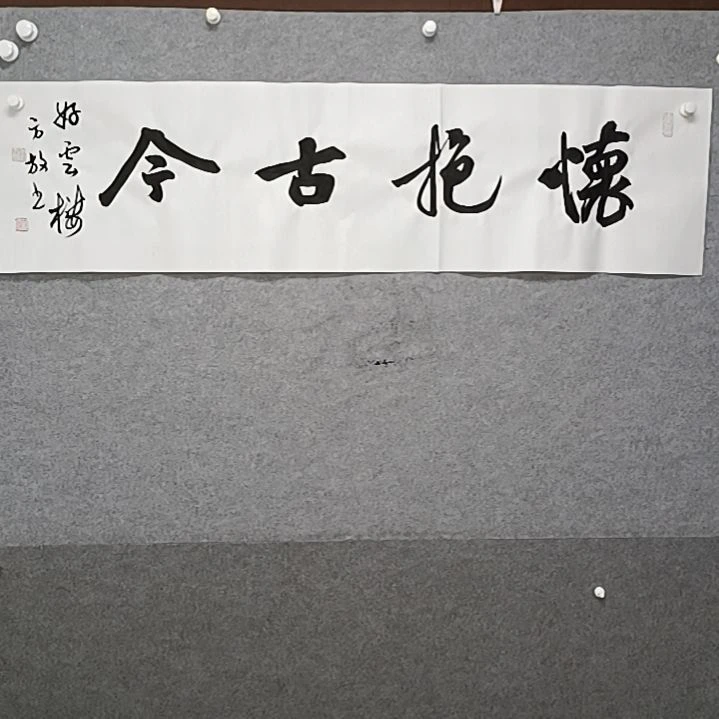 懷抱古今
好雲樓
方放书